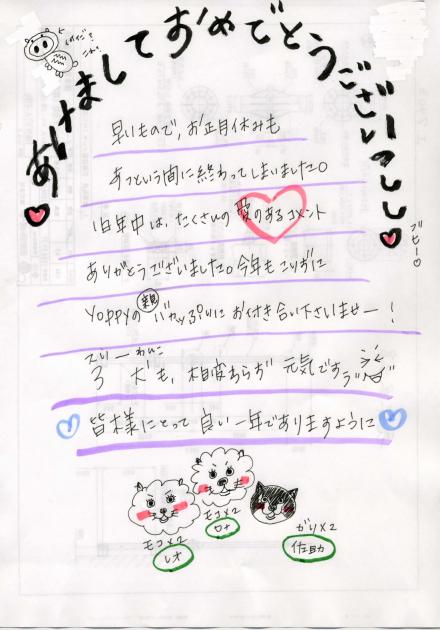 あけましておめでとうございますしし
早いもので、お正月休みも
あっという間に終わってしまいました。
旧年中は、たくさんの愛のあるコメント
ありがとうございました。今年もこりずに
Yoppyの親バカっぷりにお付き合い下さいませー!
スリーわんこ
3犬も、相変わらず元気ですヲ
皆様にとって良い一年でありますように
ブヒー♡
モコ×2
ロナ
モコ×2
レオ
ガリ×2
佐助